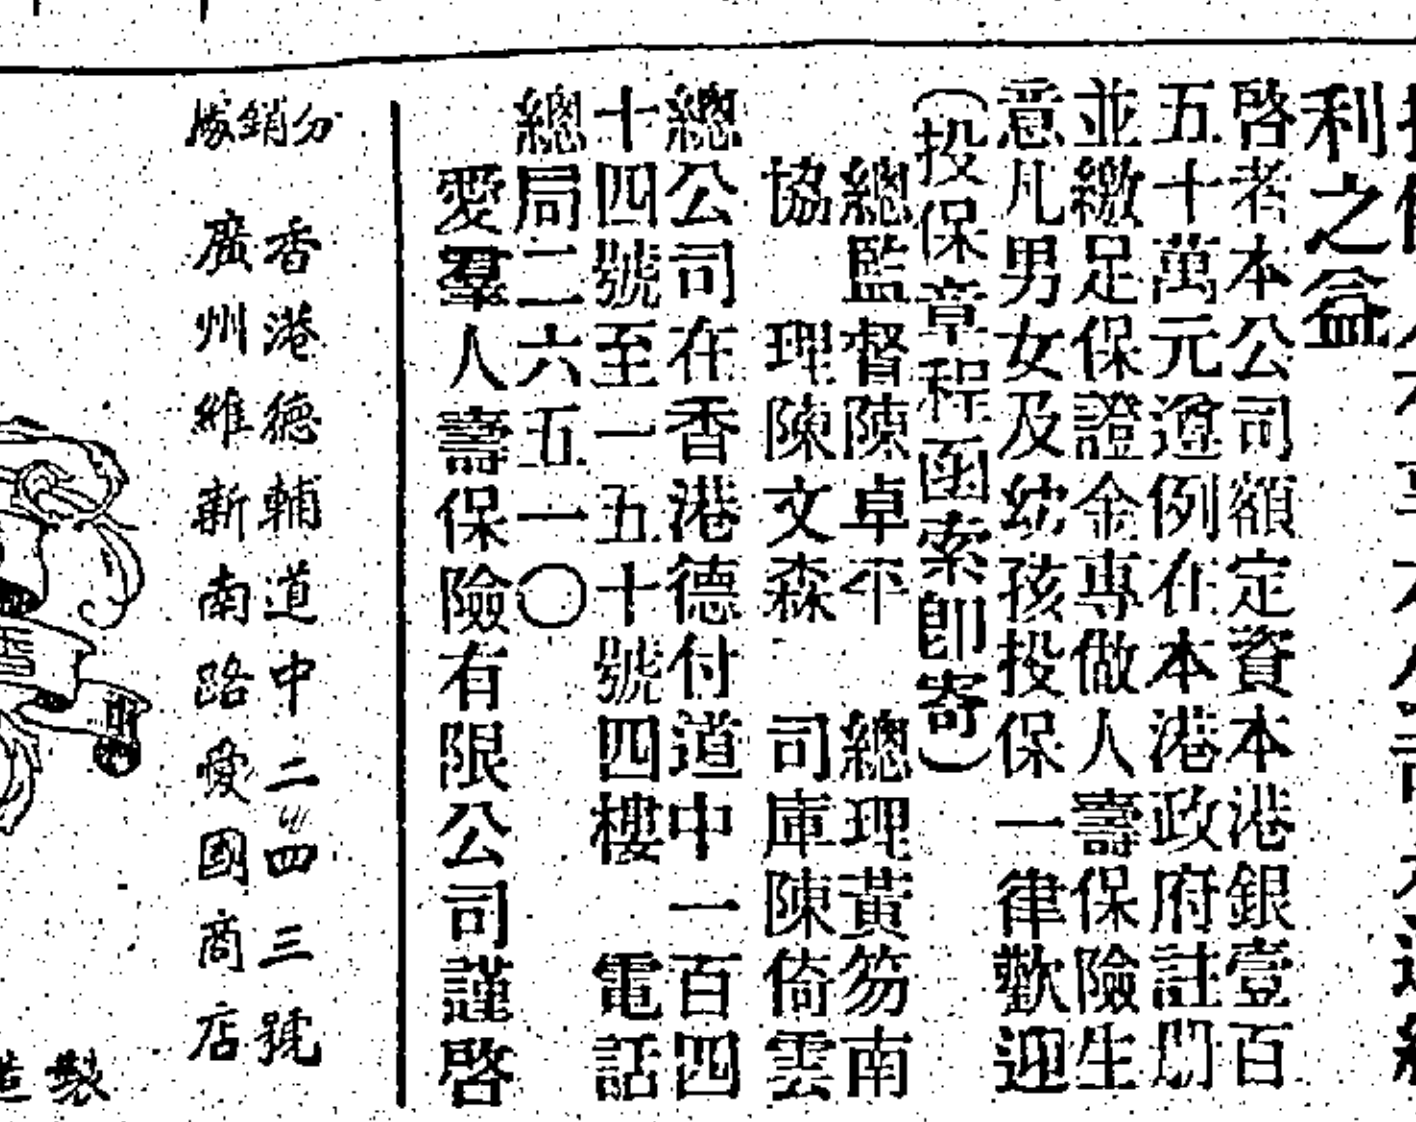 利之益
啓者本公司額定資本港銀壹百
五十萬元遵例在本港政府註冊
並繳足保證金專做人壽保險生
意凡男女及幼孩投保一律歡迎
(投保章程函索即寄)
總監督陳卓平　總理黃笏南
協　理陳文森　司庫陳倚雲
總公司在香港德付道中一百四
十四號至一五十號四樓　電話
總局二六五一〇
愛羣人壽保險有限公司謹啓
分銷
香港德輔道中二四三號
廣州維新南路愛國商店
製造